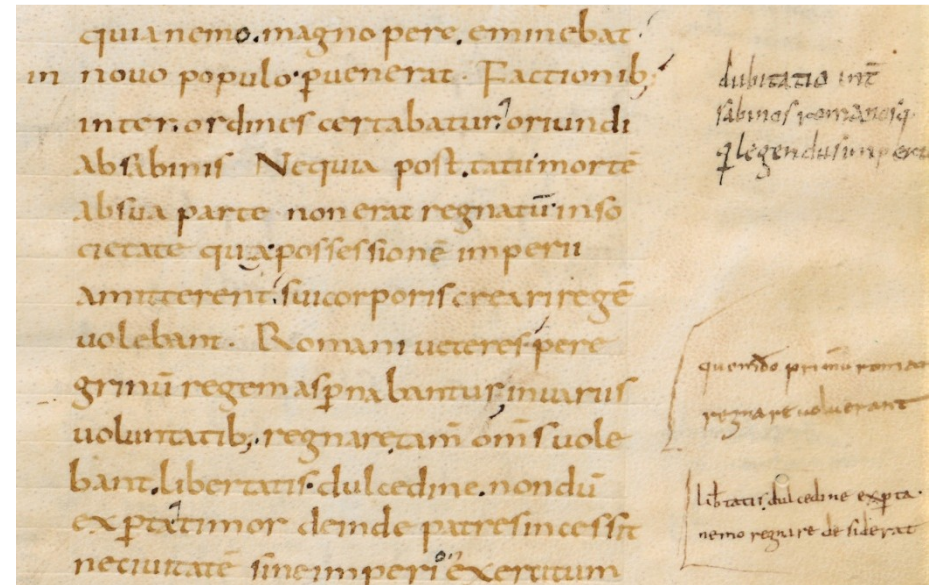 quia nemo. magno pere. eminebat
in novo populo puenerat. Factionib;
inter ordines certabatur. oriundi
absabinis Nequia post. tatii mortē
absua parte non erat regnatū. inso
cietate qua possessionē imperii
amitterent. sui corporis creari regē
volebant. Romani veteres pere
grinū regem aspnabantur, in variis
voluntatib; regnare tam̄ om̄s vole
bant. libertatis dulcedine. nondū
expta timor deinde patres incessit
neciuitatē sine imperio exercitum
dubitatio int̄
sabinos romanosq
q legendus imperi
quomō primū roman
regnare voluerant
lib̄tatis dulcedine expta.
nemo regnare desiderat